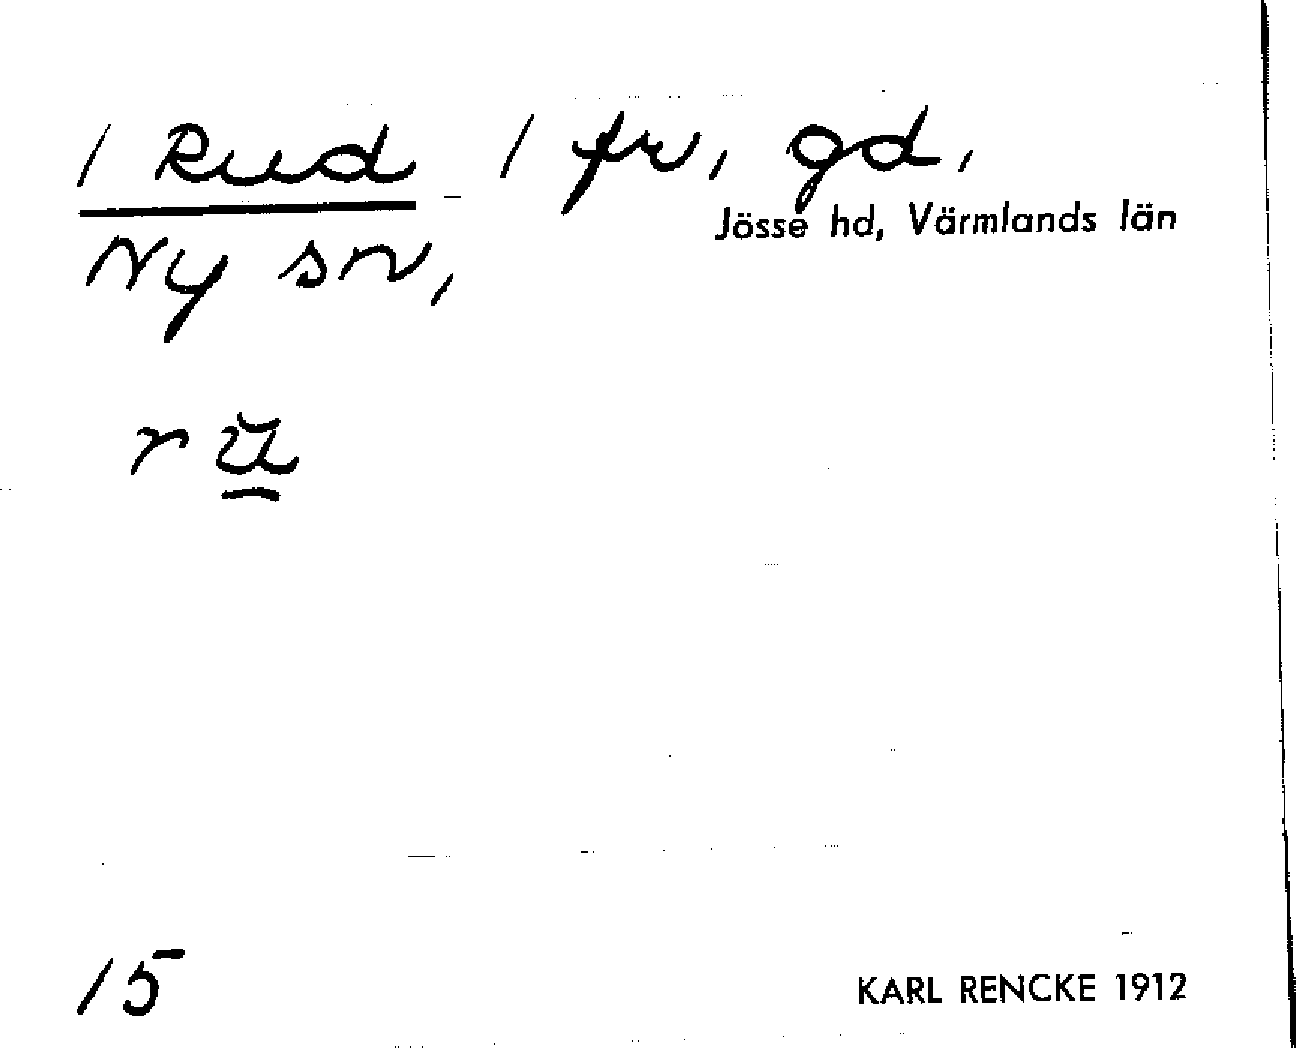 1 Rud 1 fr, gd,
Jösse hd, Värmlands län
Ny sn,
r
15
KARL RENCKE 1912